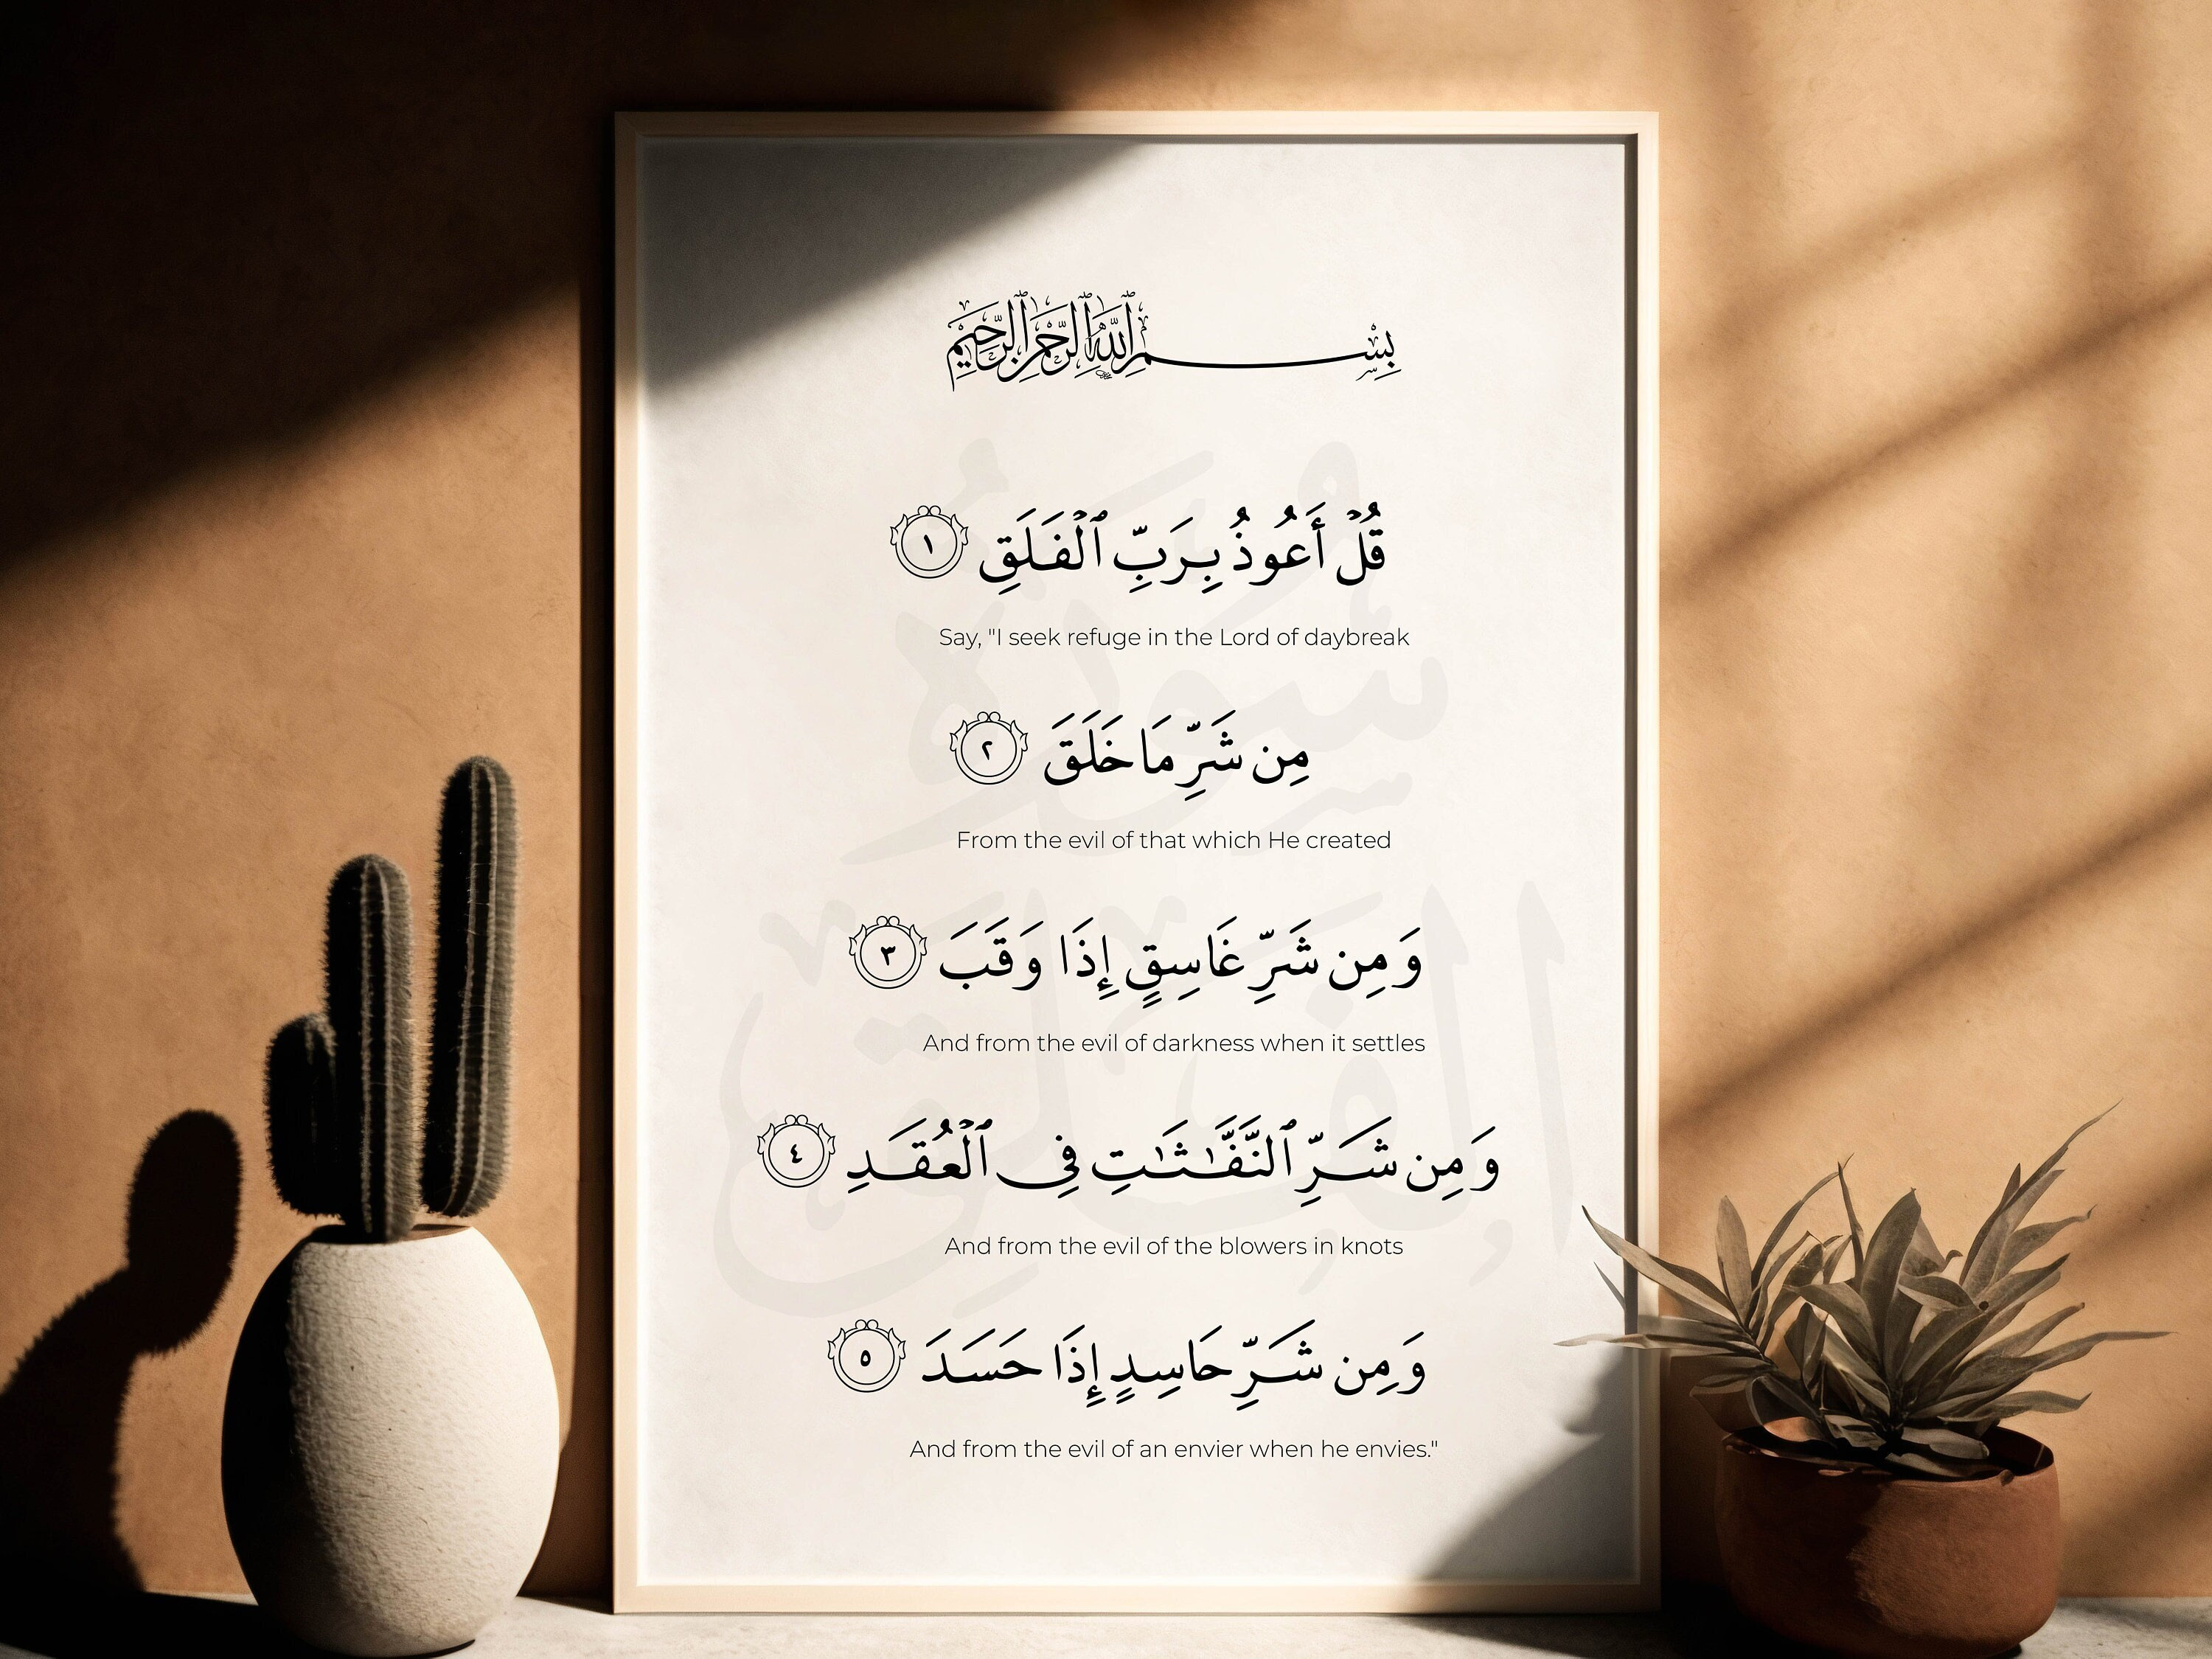 بِسْمِ اللهِ الرَّحْمٰنِ الرَّحِيْمِ
قُلْ أَعُوذُ بِرَبِّ ٱلْفَلَقِ ١
Say, "I seek refuge in the Lord of daybreak
مِن شَرِّ مَا خَلَقَ ٢
From the evil of that which He created
وَمِن شَرِّ غَاسِقٍ إِذَا وَقَبَ ٣
And from the evil of darkness when it settles
وَمِن شَرِّ ٱلنَّفَّـٰثَـٰتِ فِى ٱلْعُقَدِ ٤
And from the evil of the blowers in knots
وَمِن شَرِّ حَاسِدٍ إِذَا حَسَدَ ٥
And from the evil of an envier when he envies."
سورة
الفلق